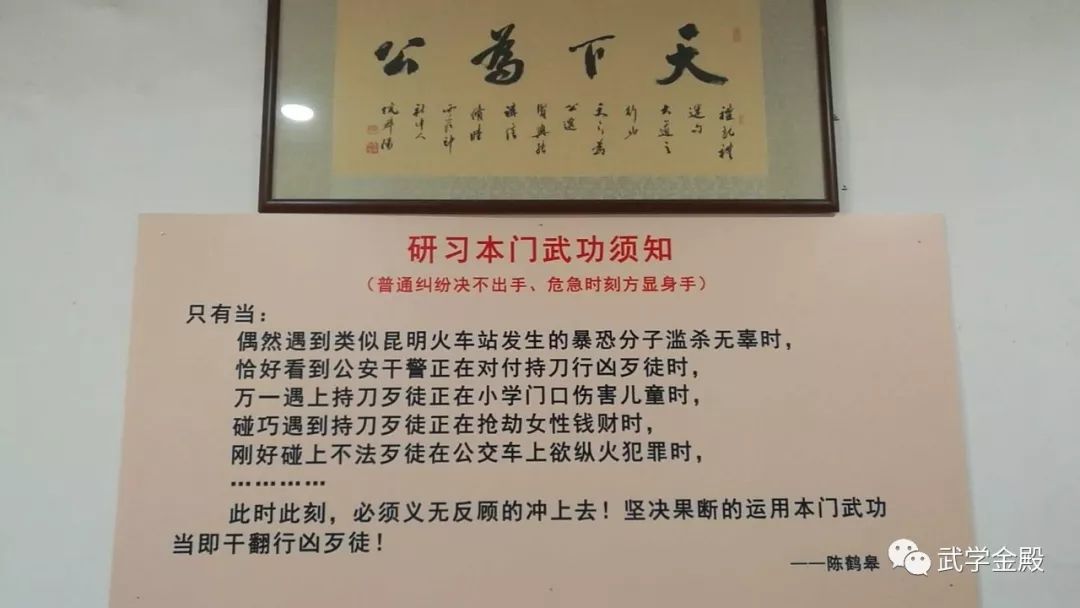 天下為公
禮記禮
選句
大道之
行也
天下為
公選
賢與能
講信
脩睦
研习本门武功须知
（普通纠纷决不出手、危急时刻方显身手）
只有当：
偶然遇到类似昆明火车站发生的暴恐分子滥杀无辜时，
恰好看到公安干警正在对付持刀行凶歹徒时，
万一遇上持刀歹徒正在小学门口伤害儿童时，
碰巧遇到持刀歹徒正在抢劫女性钱财时，
刚好碰上不法歹徒在公交车上欲纵火犯罪时，
…………
此时此刻，必须义无反顾的冲上去！坚决果断的运用本门武功
当即干翻行凶歹徒！
——陈鹤皋
武学金殿